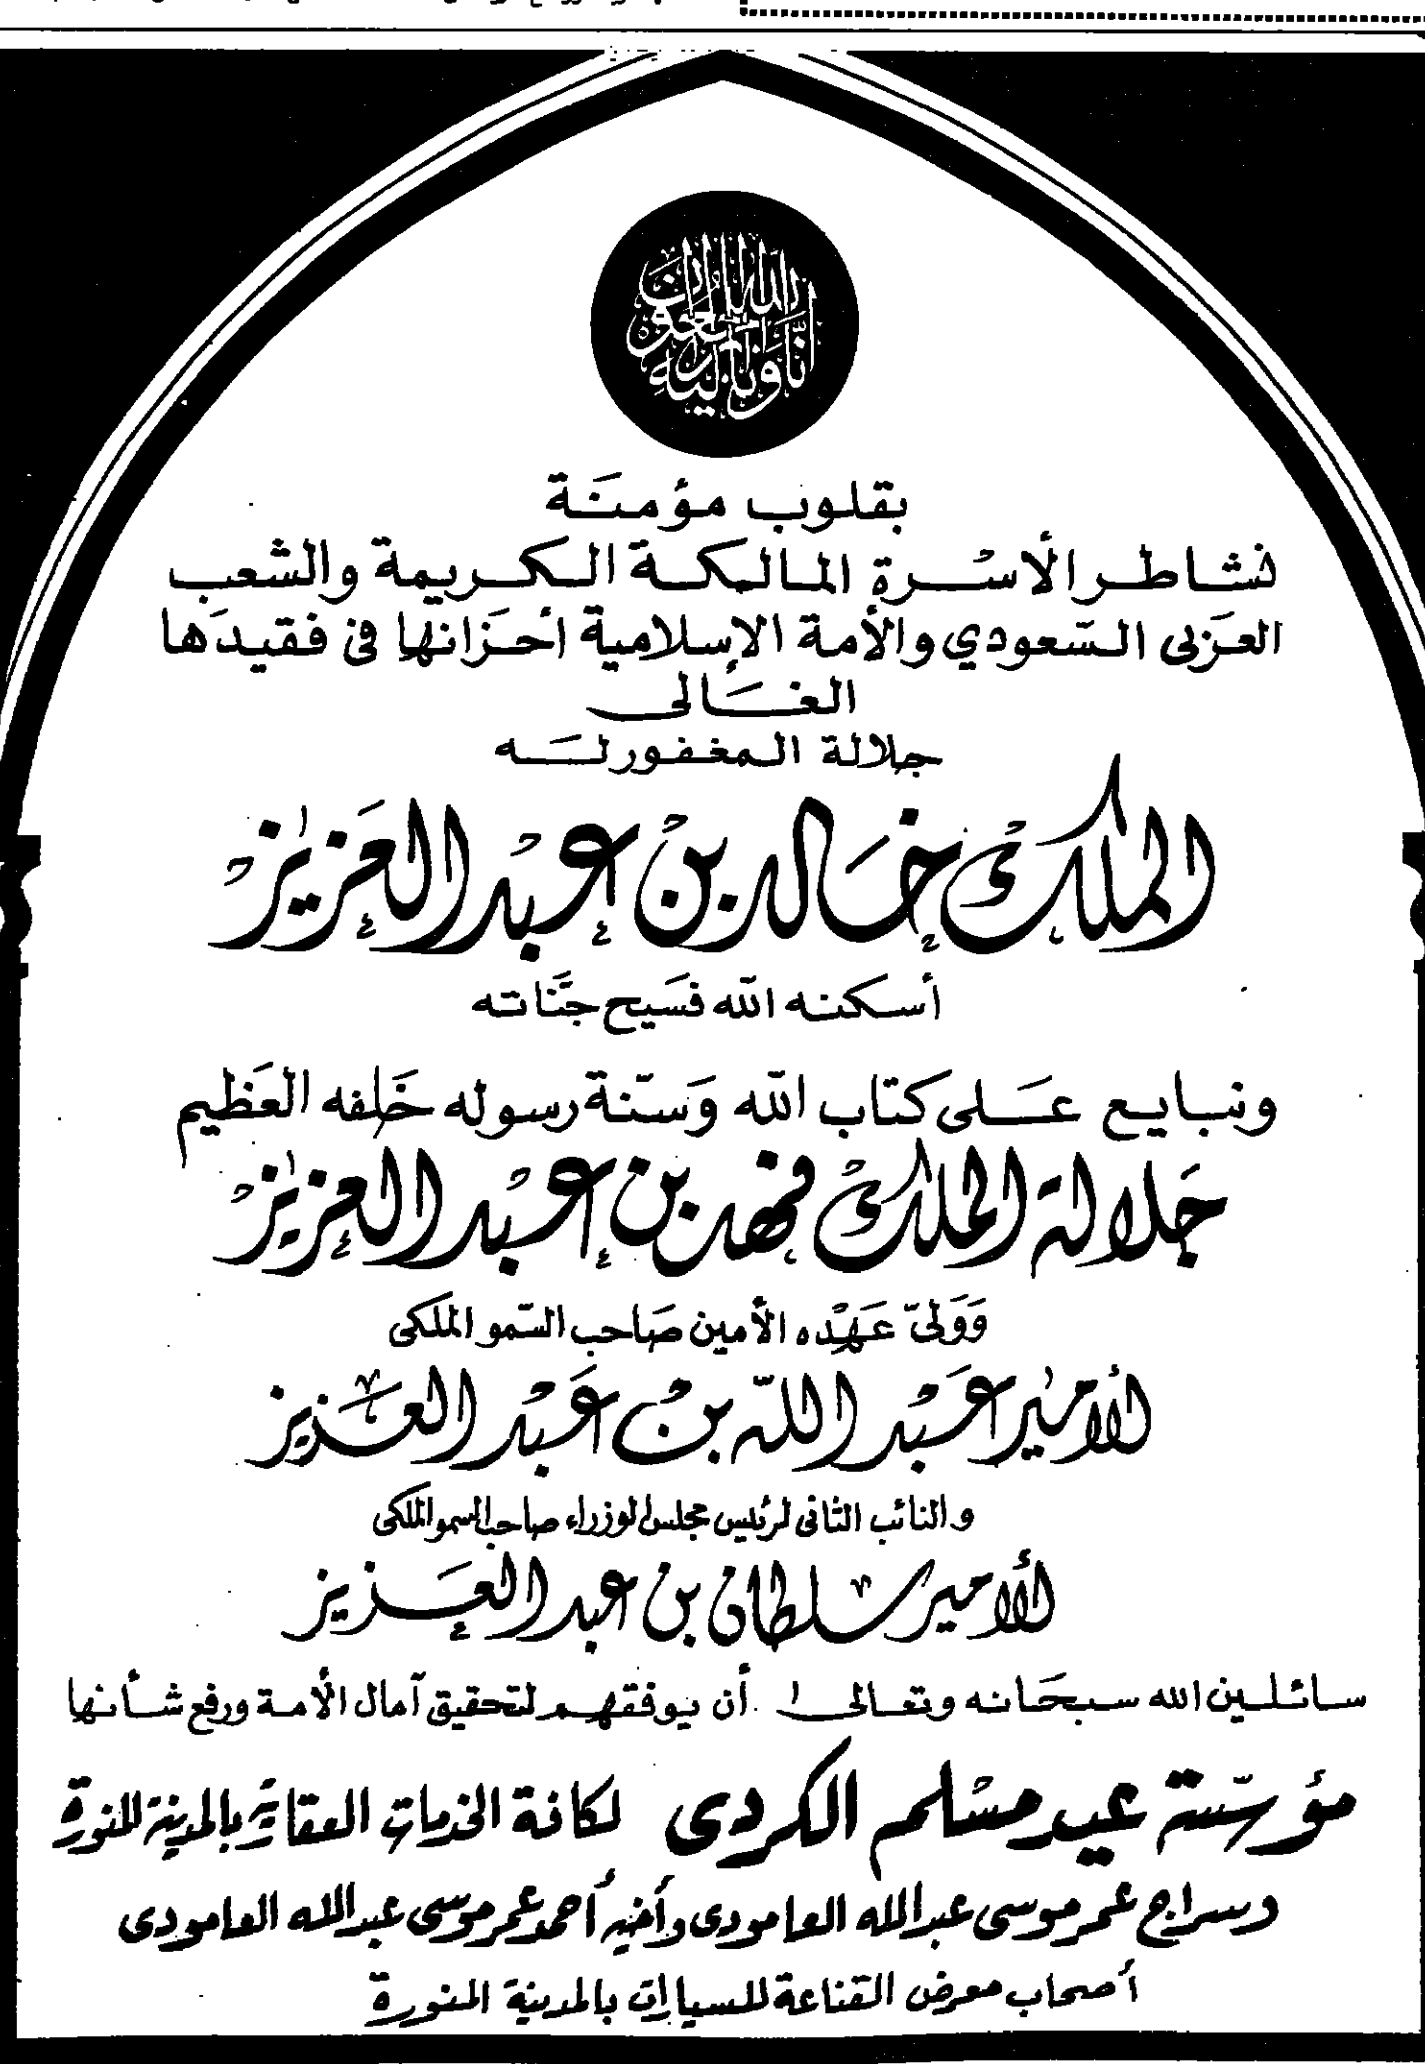 إنا لله وإنا إليه راجعون
بقلوب مؤمنة
نشاطر الأسرة المالكة الكريمة والشعب
العربي السعودي والأمة الإسلامية أحزانها في فقيدها
الغالى
جلالة المغفور له
الملك خالد بن عبد العزيز
أسكنه الله فسيح جناته
ونبايع على كتاب الله وسنة رسوله خلفه العظيم
جلالة الملك فهد بن عبد العزيز
وولي عهده الأمين صاحب السمو الملكى
الأمير عبد الله بن عبد العزيز
والنائب الثانى لرئيس مجلس الوزراء صاحب السمو الملكى
الأمير سلطان بن عبد العزيز
سائلين الله سبحانه وتعالى أن يوفقهم لتحقيق آمال الأمة ورفع شأنها
مؤسسة عيد مسلم الكردى لكافة الخدمات العقارية بالمدينة المنورة
وسراج عمر موسى عبدالله العامودى وأخيه أحمد عمر موسى عبدالله العامودى
أصحاب معرض القناعة للسيارات بالمدينة المنورة